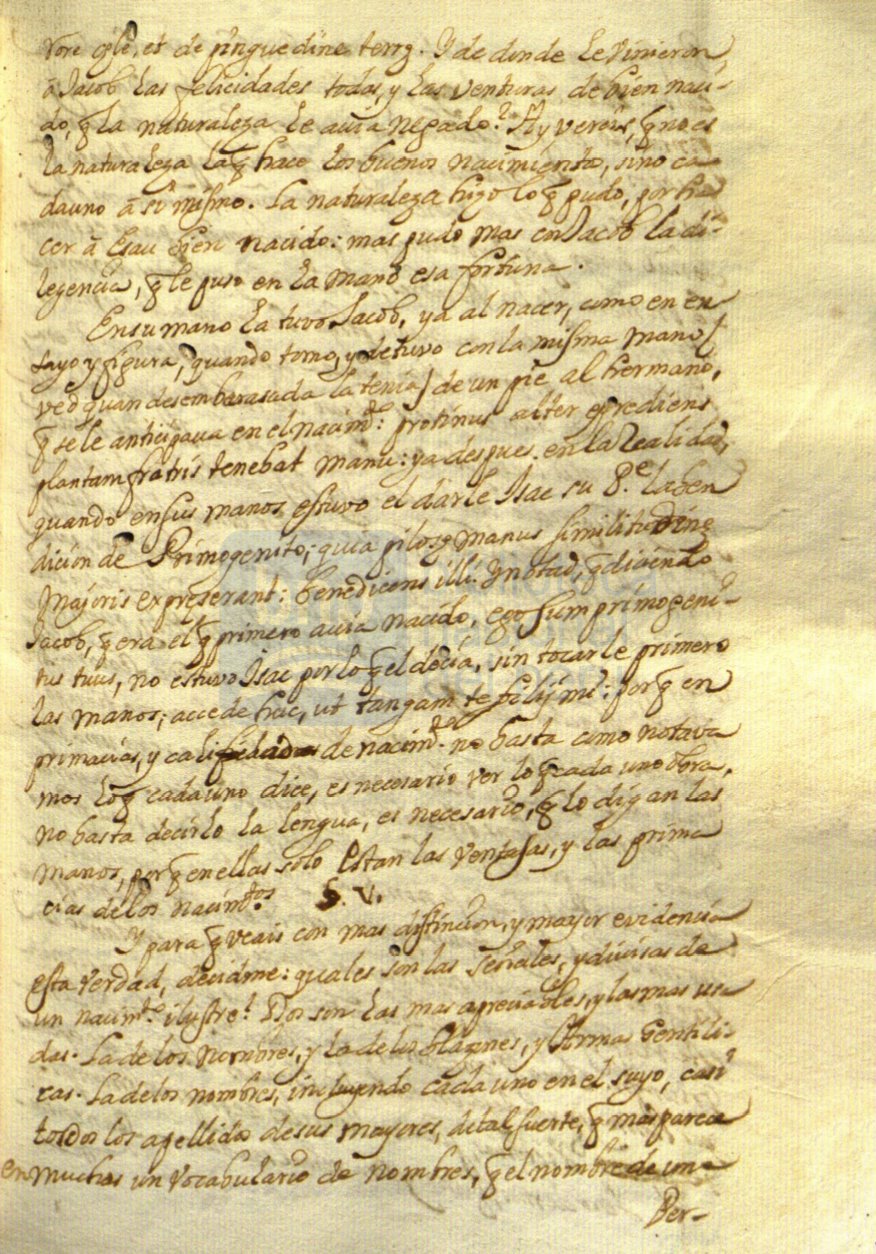 rore cęli, et de pinguedine terrę. Y de donde le vinieron
à Jacob las felicidades todas, y las venturas de bien naci-
do, q̃ la naturaleza le avia negado? Ay vereis, q̃ no es
la naturaleza la q̃ hace los buenos nacimientos, sino ca
dauno à si mismo. La naturaleza hizo lo q̃ pudo, por ha
cer à Esau bien nacido: mas pudo mas con Jacob la di-
legencia, q̃ le puso en la mano esa fortuna.
En su mano la tuvo Jacob, ya al nacer, como en en
sayo y figura, quando tomo, y detuvo con la misma mano (
ved quan desembarasada la tenia) de un pie al hermano,
q̃ se le anticipava en el nacimto: protinus alter egrediens
plantam fratris tenebat manu: ya despues en la realidad,
quando en sus manos estuvo el darle Isac su Pe. la ben
dicion de Primogenito; quia pilosę manus similitudinę
majoris expreserant: benedicens illi. Y notad, q̃ diciendo
Jacob, q̃ era el q̃ primero avia nacido, ego sum primogeni-
tus tuus, no estuvo Isac por lo q̃ el decia, sin tocarle primero
las manos; accede huc, ut tangam te fili mi: porq̃ en
primacias, y calidades de nacimto. no basta como notava
mos lo q̃ cadauno dice, es necesario ver lo q̃ cada uno obra,
no basta decirlo la lengua, es necesario, q̃ lo digan las
manos, porq̃ en ellas solo estan las ventajas, y las prima
cias de los nacimtos. §. V.
Y para q̃ veais con mas distincion, y mayor evidencia
esta verdad, decidme: quales son las señales, y divisas de
un nacimto. ilustre? Dos son las mas apreciables, y las mas usa
das. La de los Nombres, y la de los blasones, y Armas Gentili-
cas. La de los nombres, incluyendo cada uno en el suyo, casi
todos los apellido de sus mayores, de tal suerte, q̃ mas parece
en muchos un vocabulario de nombres, q̃ el nombre de una
Per-
Biblioteca Nacional del Perú